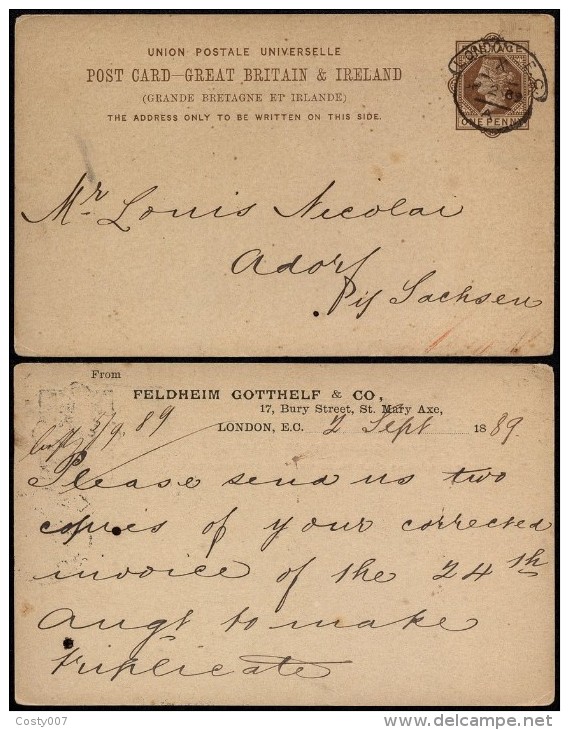 UNION POSTALE UNIVERSELLE
POST CARD—GREAT BRITAIN & IRELAND
(GRANDE BRETAGNE ET IRLANDE)
THE ADDRESS ONLY TO BE WRITTEN ON THIS SIDE.
POSTAGE
ONE PENNY
LONDON E.C.
Mr Louis Nicolai
Adorf
i/ Sachsen
From
FELDHEIM GOTTHELF & CO,
17, Bury Street, St. Mary Axe,
LONDON, E.C. 2 Sept 1889
/9. 89
Please send us two
copies of your corrected
invoice of the 24th
Augt to make
triplicate
Costy007
delcampe.net